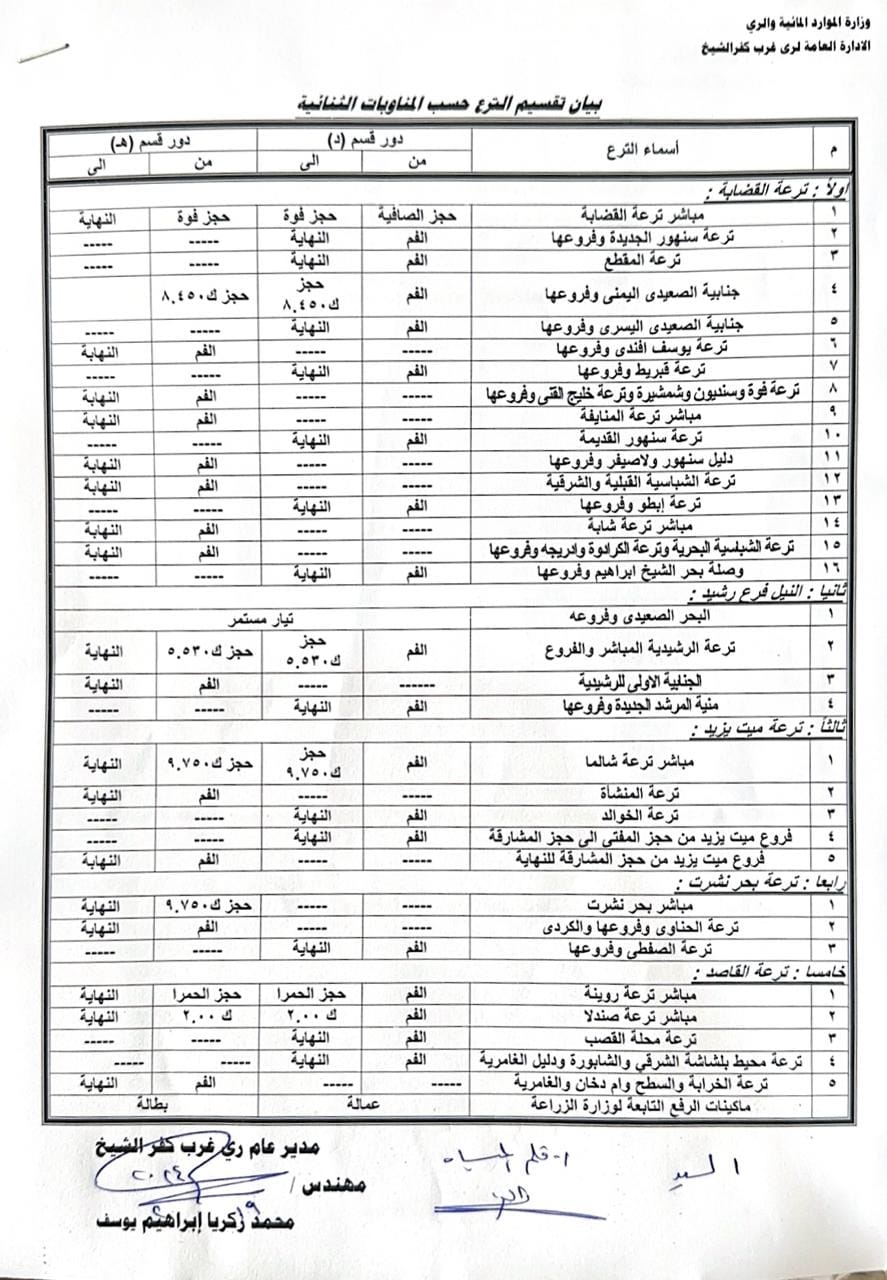 وزارة الموارد المائية والري
الادارة العامة لرى غرب كفرالشيخ
بيان تقسيم الترع حسب المناوبات الثنائية
م أسماء الترع دور قسم (د) دور قسم (هـ)
من الى من الى
اولاً : ترعة القضابة :
١ مباشر ترعة القضابة حجز الصافية حجز فوة حجز فوة النهاية
٢ ترعة سنهور الجديدة وفروعها الفم النهاية ----- -----
٣ ترعة المقطع الفم النهاية ----- -----
٤ جنابية الصعيدى اليمنى وفروعها الفم حجز ك٨.٤٥٠ حجز ك٨.٤٥٠
٥ جنابية الصعيدى اليسرى وفروعها الفم النهاية ----- -----
٦ ترعة يوسف افندى وفروعها ----- ----- الفم النهاية
٧ ترعة قبريط وفروعها الفم النهاية ----- -----
٨ ترعة فوة وسنديون وشمشيرة وترعة خليج الفتى وفروعها ----- ----- الفم النهاية
٩ مباشر ترعة المنايفة ----- ----- الفم النهاية
١٠ ترعة سنهور القديمة الفم النهاية ----- -----
١١ دليل سنهور ولاصيفر وفروعها ----- ----- الفم النهاية
١٢ ترعة الشباسية القبلية والشرقية ----- ----- الفم النهاية
١٣ ترعة إبطو وفروعها الفم النهاية ----- -----
١٤ مباشر ترعة شابة ----- ----- الفم النهاية
١٥ ترعة الشباسية البحرية وترعة الكرادوة وادريجه وفروعها ----- ----- الفم النهاية
١٦ وصلة بحر الشيخ ابراهيم وفروعها الفم النهاية ----- -----
ثانيا : النيل فرع رشيد :
١ البحر الصعيدى وفروعه تيار مستمر
٢ ترعة الرشيدية المباشر والفروع الفم حجز ك٥.٥٣٠ حجز ك٥.٥٣٠ النهاية
٣ الجنابية الاولى للرشيدية ------ ----- الفم النهاية
٤ منية المرشد الجديدة وفروعها الفم النهاية ----- -----
ثالثاً : ترعة ميت يزيد :
١ مباشر ترعة شالما الفم حجز ك٩.٧٥٠ حجز ك٩.٧٥٠ النهاية
٢ ترعة المنشأة ----- ----- الفم النهاية
٣ ترعة الخوالد الفم النهاية ----- -----
٤ فروع ميت يزيد من حجز المفتى الى حجز المشارقة الفم النهاية ----- -----
٥ فروع ميت يزيد من حجز المشارقة للنهاية ----- ----- الفم النهاية
رابعا : ترعة بحر نشرت :
١ مباشر بحر نشرت ----- ----- حجز ك٩.٧٥٠ النهاية
٢ ترعة الحناوى وفروعها والكردى ----- ----- الفم النهاية
٣ ترعة الصفطى وفروعها الفم النهاية ----- -----
خامسا : ترعة القاصد :
١ مباشر ترعة روينة الفم حجز الحمرا حجز الحمرا النهاية
٢ مباشر ترعة صندلا الفم ك ٢.٠٠ ك ٢.٠٠ النهاية
٣ ترعة محلة القصب الفم النهاية ----- -----
٤ ترعة محيط بلشاشة الشرقي والشابورة ودليل الغامرية الفم النهاية ----- -----
٥ ترعة الخرابة والسطح وام دخان والغامرية ----- ----- الفم النهاية
ماكينات الرفع التابعة لوزارة الزراعة عمالة بطالة
مدير عام ري غرب كفر الشيخ
مهندس /
٢٠٢٤
محمد زكريا إبراهيم يوسف
السيد